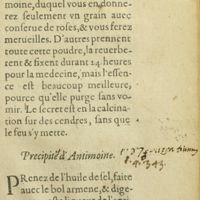 moine, duquel vous en donne-
rez seulement vn grain auec
conserue de roses, & vous ferez
merueilles. D'autres prennent
toute cette poudre, la reuerbe-
rent & fixent durant 24 heures
pour la medecine, mais l'essen-
ce est beaucoup meilleure,
pource qu'elle purge sans vo-
mir. Le secret est en la calcina-
tion sur des cendres, sans que
le feu s'y mette.
Precipité d'Antimoine.
PRenez de l'huile de sel, faite
auec le bol armene, & dige-